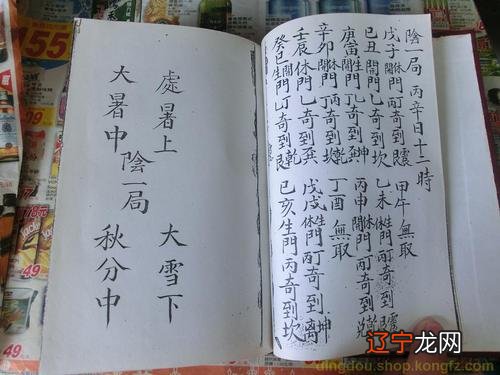 陰一局 丙辛日十二時
戊子休門丙奇到震 甲午無取
己丑開門乙奇到坎 乙未休生門丙奇到震
庚寅開生門乙奇到坤 丙申休開門丁奇到
辛卯開休門丙奇到乾 丁酉無取
壬辰休門乙奇到巽 戊戌休生門丙奇到離坤
癸巳開生門丁奇到艮乾 己亥生門丙奇到坎
處暑上 大雪下
陰一局
大暑中 秋分中
155
49
49
辽宁龙网
dingdou.shop.kongfz.com